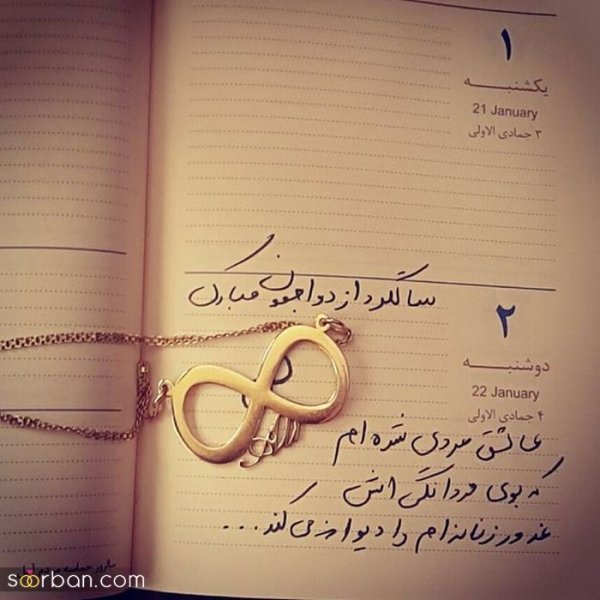 ۱
یکشنبه
21 January
۳ جمادی الاولی
سالگرد ازدواجمون مبارک
۲
دوشنبه
22 January
۴ جمادی الاولی
عاشق مردی شده ام
که بوی مردانگی اش
غرور زنانه ام را دیوانه می کند...
soorban.com